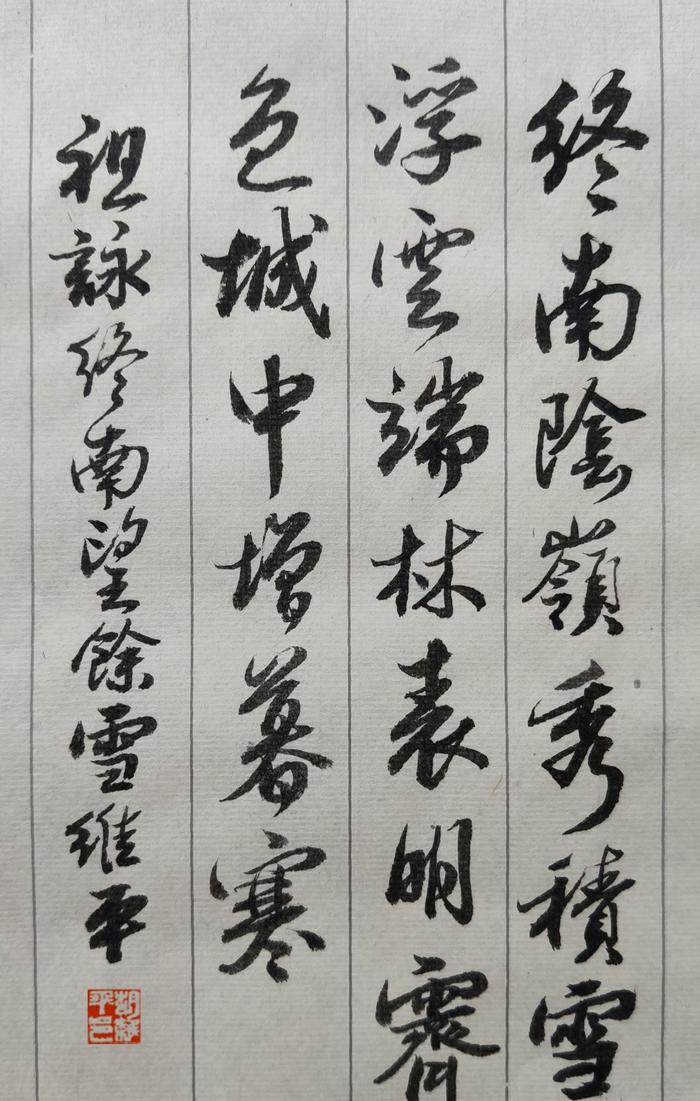 終南陰嶺秀積雪
浮雲端林表明霽
色城中增暮寒
祖詠終南望餘雪維平